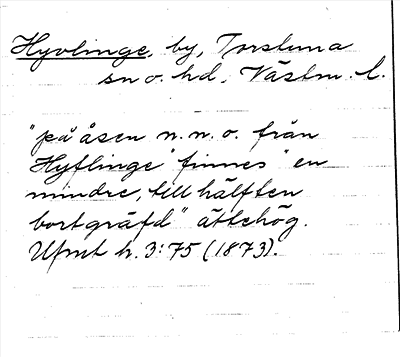 Hyvlinge, by, Torstuna
sn o. hd, Västm. l.
"på åsen n. n. o. från
Hyflinge" finnes "en
mindre, till hälften
bortgräfd" ättehög.
Ufmt h. 3:75 (1873).